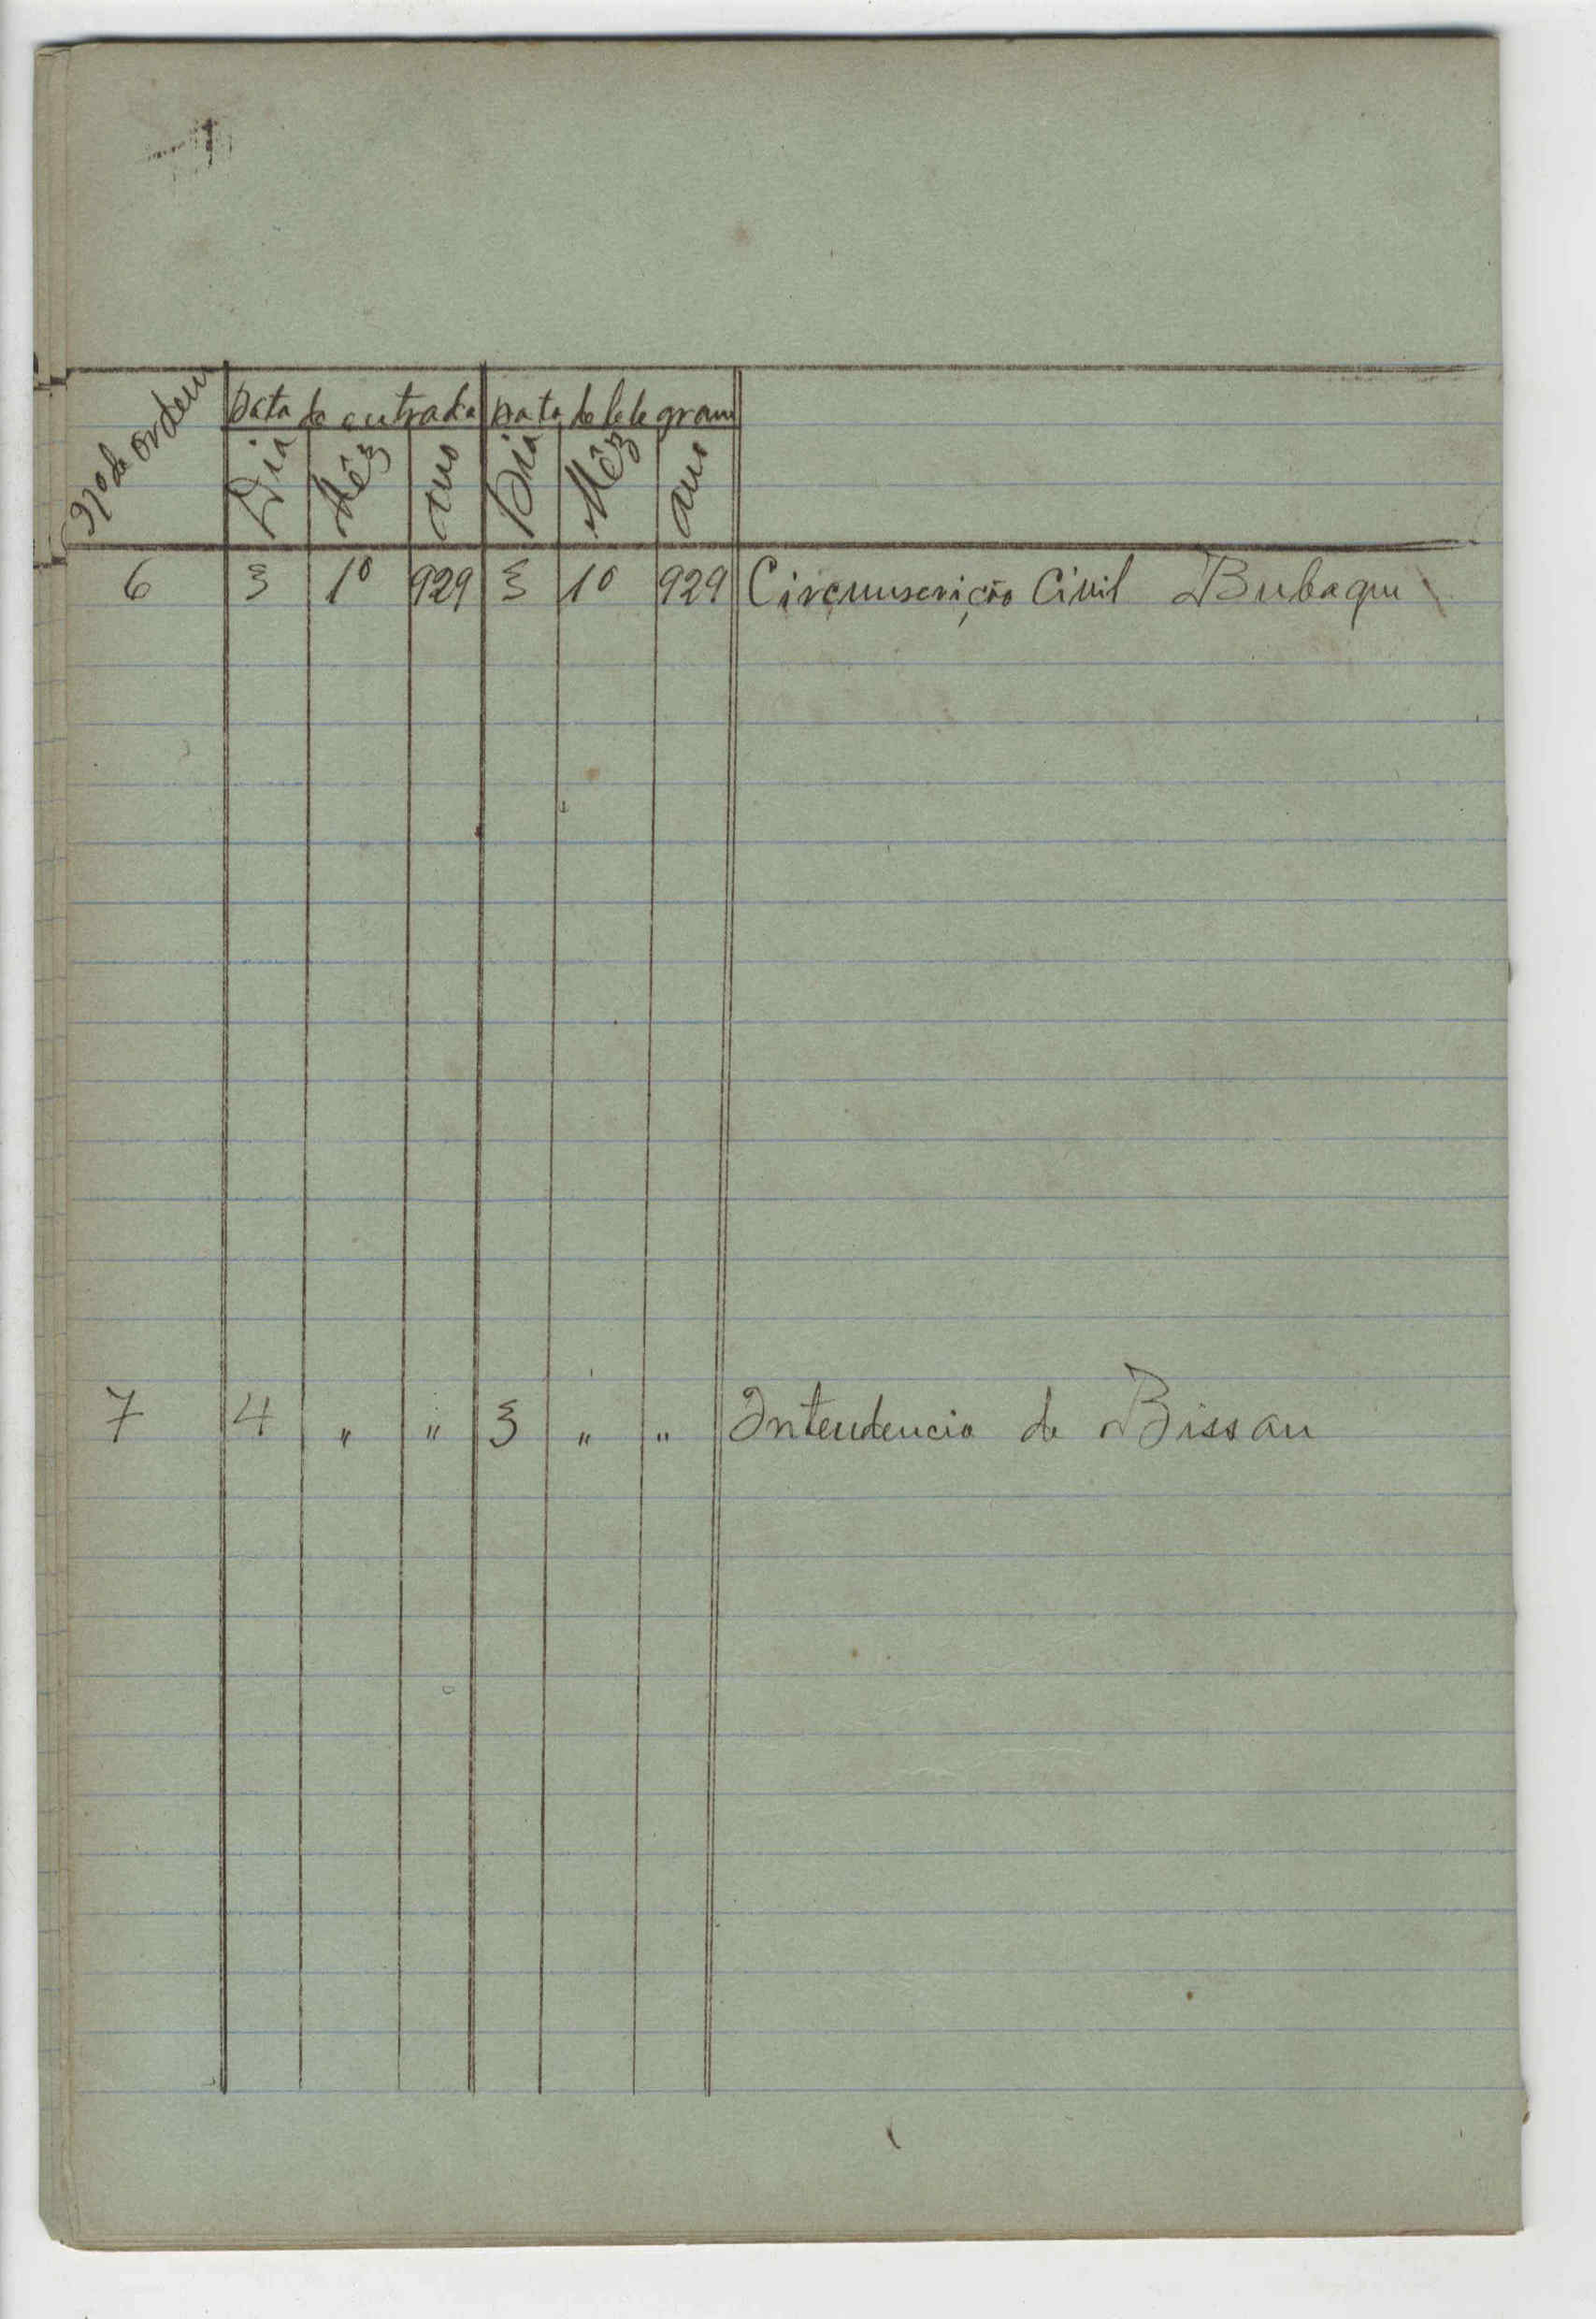 Nº de ordem
Data de entrada Data de telegram
Dia Mêz ano Dia Mêz ano
6 3 10 929 3 10 929 Circumscrição Civil Bubaque
7 4 " " 3 " " Intendencia de Bissau